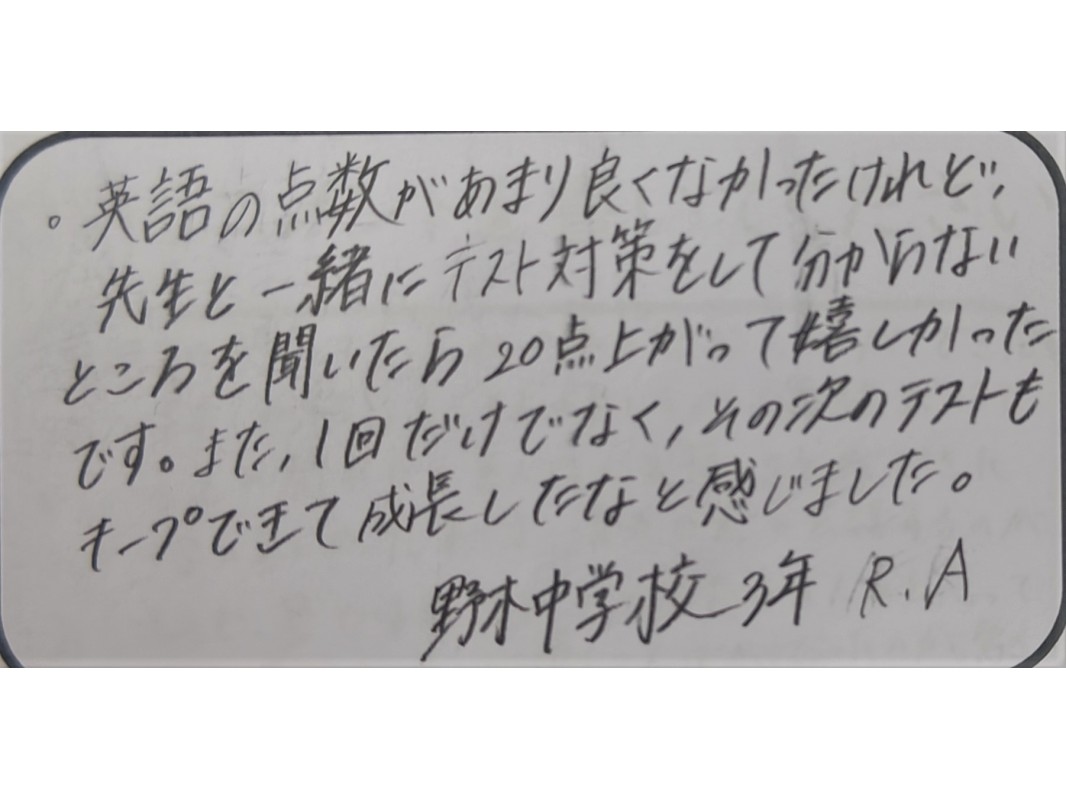 。英語の点数があまり良くなかったけれど、
先生と一緒にテスト対策をして分からない
ところを聞いたら20点上がって嬉しかった
です。また、1回だけでなく、その次のテストも
キープできて成長したなと感じました。
野木中学校 3年 R.A